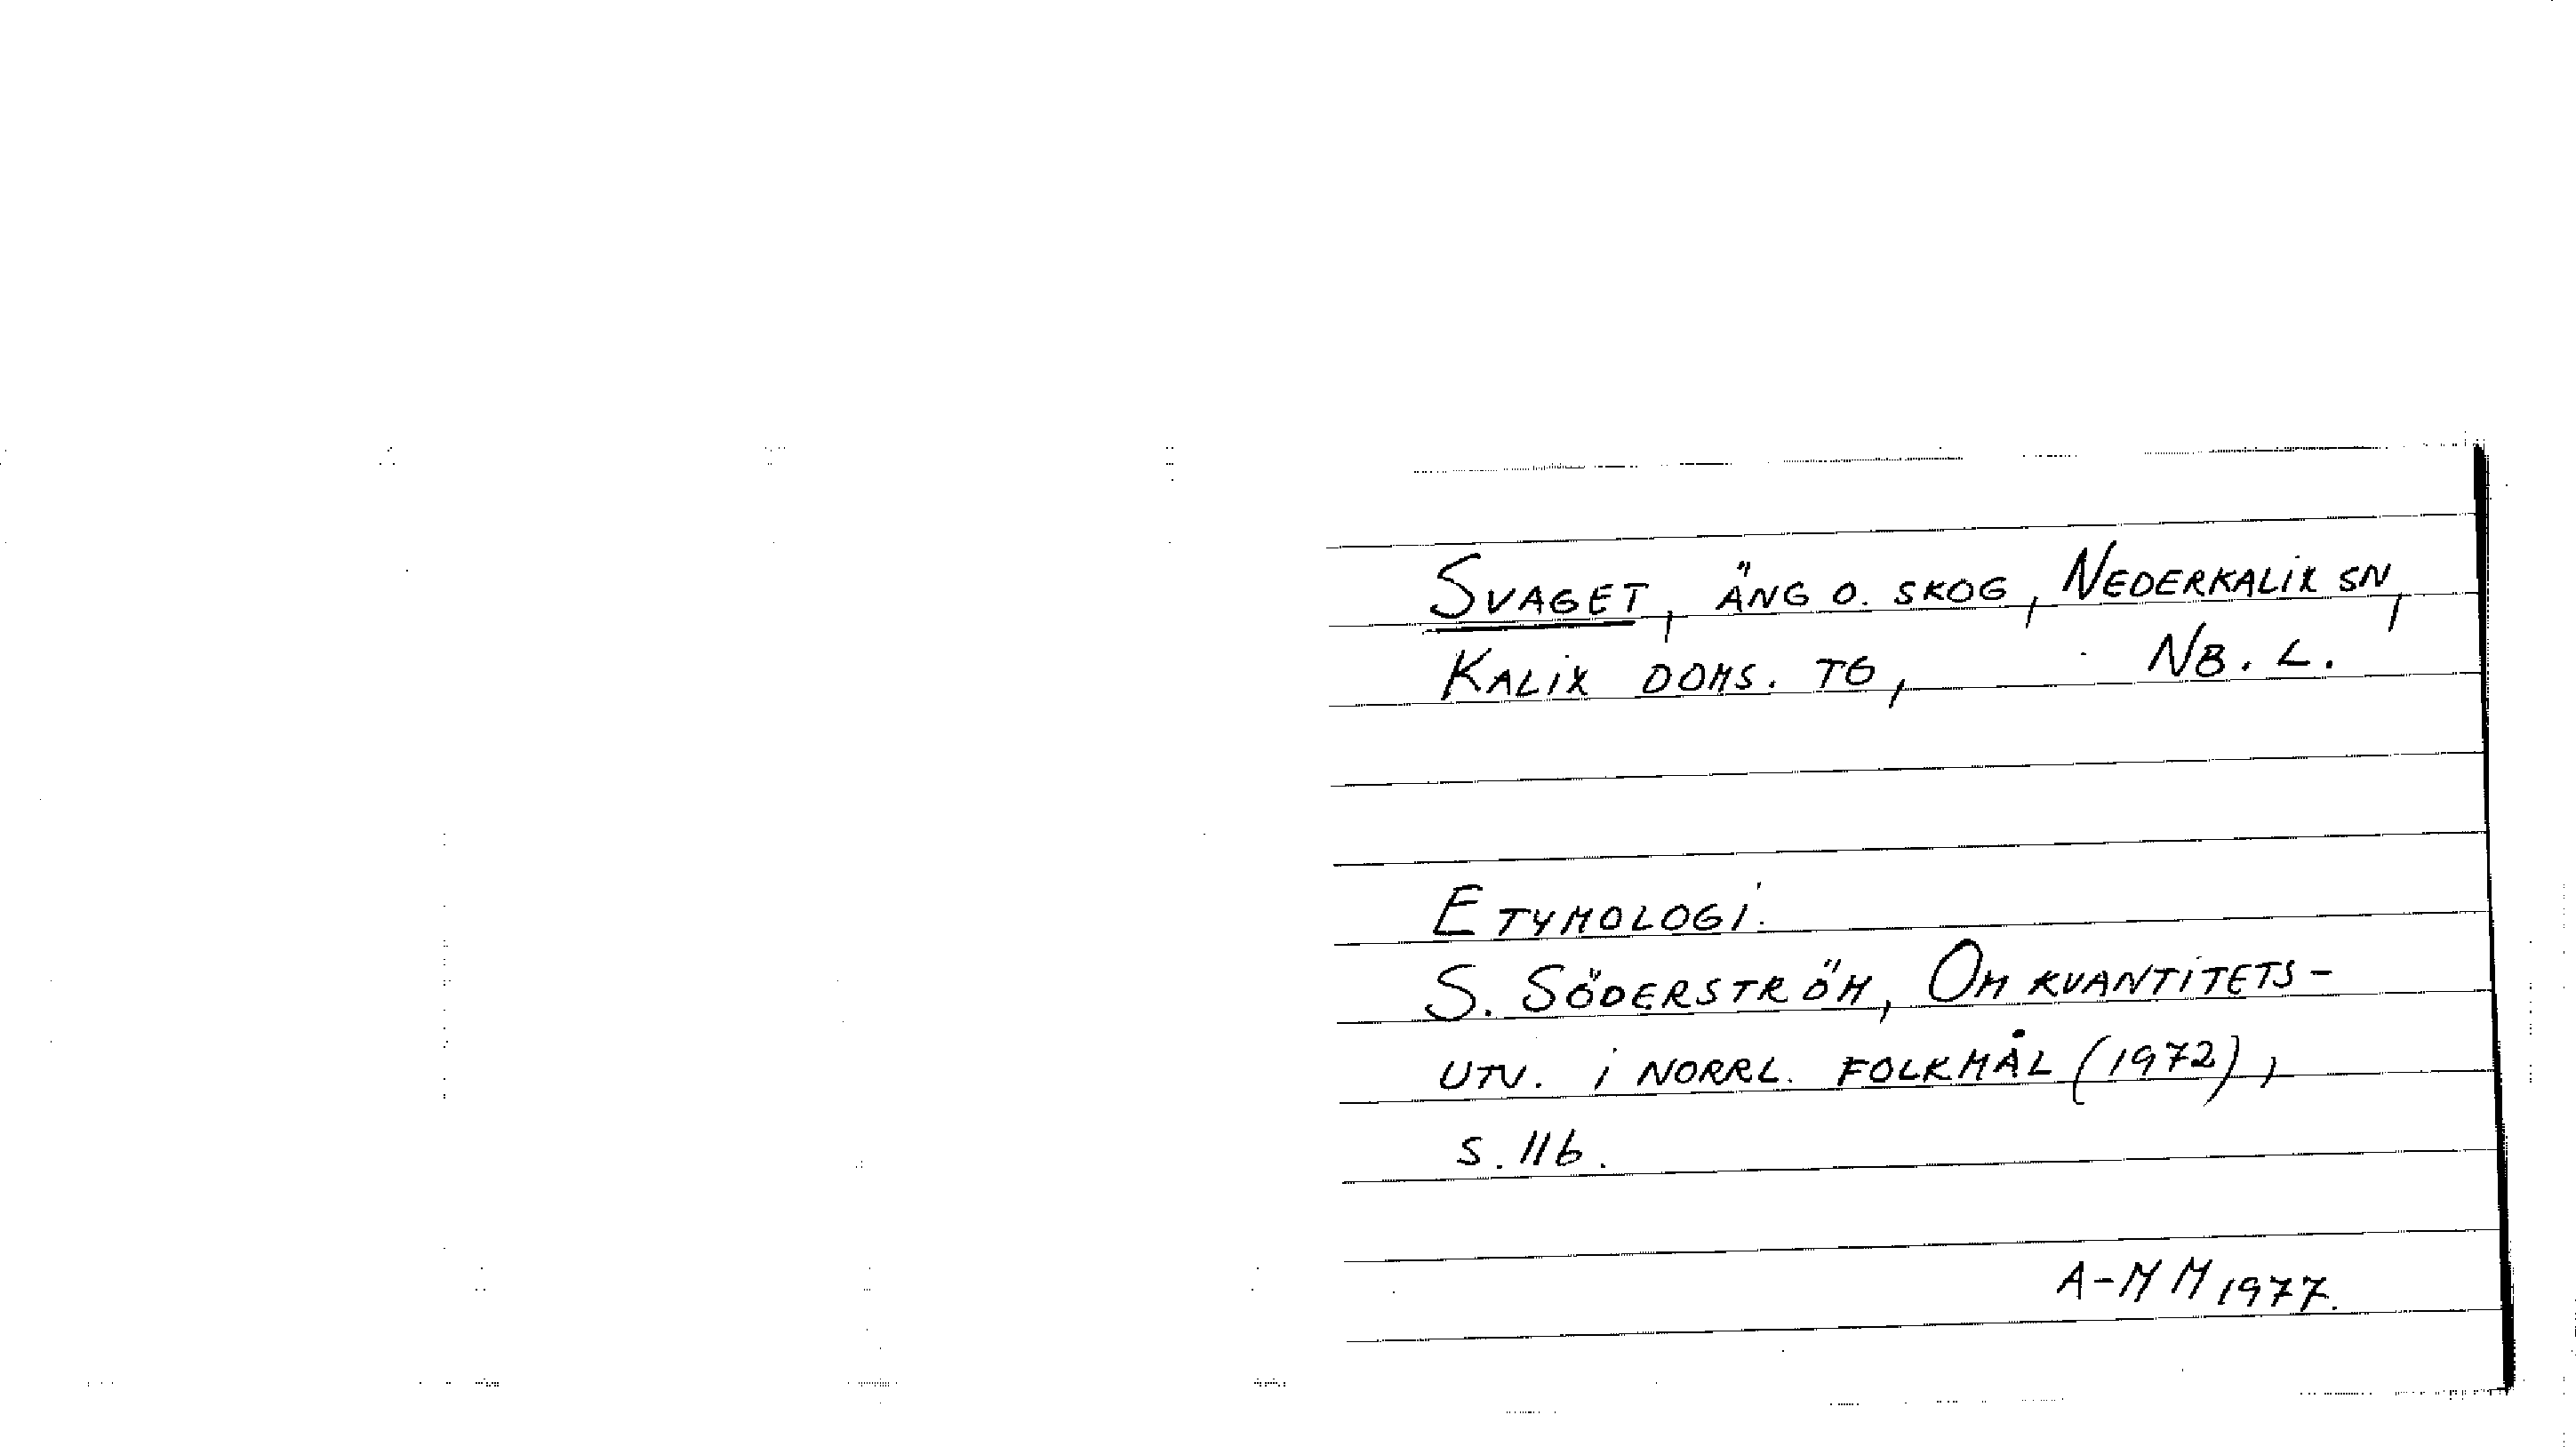 SVAGET, ÄNG O. SKOG, NEDERKALIX SN,
KALIX DOMS. TG, NB. L.
ETYMOLOGI.
S. SÖDERSTRÖM, OM KVANTITETS-
UTV. I NORRL. FOLKMÅL (1972),
S. 116.
A-M M 1977.